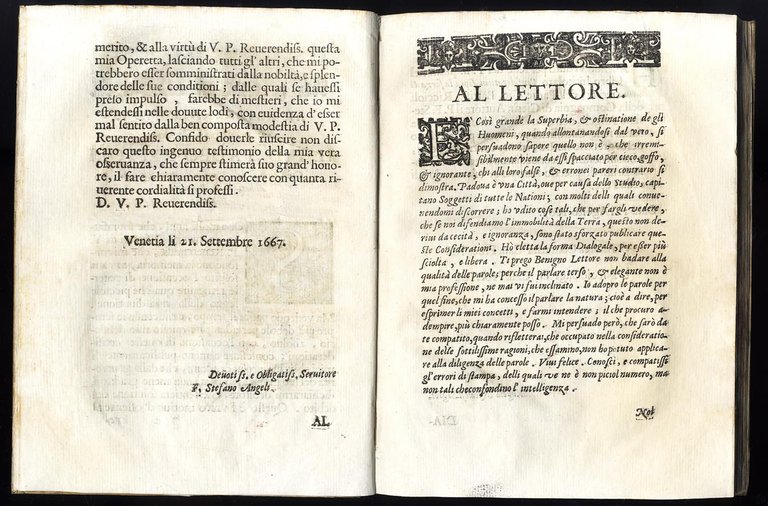 merito, & alla virtù di V. P. Reuerendiss. questa
mia Operetta, lasciando tutti gl' altri, che mi po-
trebbero esser somministrati dalla nobiltà, e splen-
dore delle sue conditioni; dalle quali se hauessi
preso impulso, farebbe di mestieri, che io mi
estendessi nelle douute lodi, con euidenza d'esser
mal sentito dalla ben composta modestia di V. P.
Reuerendiss. Confido douerle riuscire non dis-
caro questo ingenuo testimonio della mia vera
osseruanza, che sempre stimerà suo grand' hono-
re, il fare chiaramente conoscere con quanta ri-
uerente cordialità si professi.
D. V. P. Reuerendiss.
Venetia li 21. Settembre 1667.
Deuotiss. e Obligatiss. Seruitore
F. Stefano Angeli.
AL
AL LETTORE.
E Così grande la Superbia, & ostinatione de gli
Huomeni, quando allontanandosi dal vero, si
persuadono sapere quello non è, che irremi-
sibilmente viene da essi spacciato per cieco, goffo,
& ignorante, chi alli loro falsi, & erronei pareri contrario si
dimostra. Padoua è vna Città, oue per causa dello Studio, capi-
tano Soggetti di tutte le Nationi; con molti delli quali conue-
nendomi discorrere; ho vdito cose tali, che per fargli vedere,
che se noi difendiamo l'immobilità della Terra, questo non de-
riua da cecità, e ignoranza, sono stato sforzato publicare que-
ste Considerationi. Hò eletta la forma Dialogale, per esser più
sciolta, e libera. Ti prego Benigno Lettore non badare alla
qualità delle parole; perche il parlare terso, & elegante non è
mia professione, ne mai vi fui inclinato. Io adopro le parole per
quel fine, che mi ha concesso il parlare la natura; cioè a dire, per
esprimer li miei concetti, e farmi intendere; il che procuro a-
dempire, più chiaramente posso. Mi persuado però, che sarò da
te compatito, quando rifletterai, che occupato nella consideratio-
ne delle sottilissime ragioni, che essamino, non hò potuto applica-
re alla diligenza delle parole. Viui felice. Conosci, e compatisci
gl'errori di stampa, delli quali ve ne è non piciol numero, ma
non tali che confondino l'intelligenza.
Noi